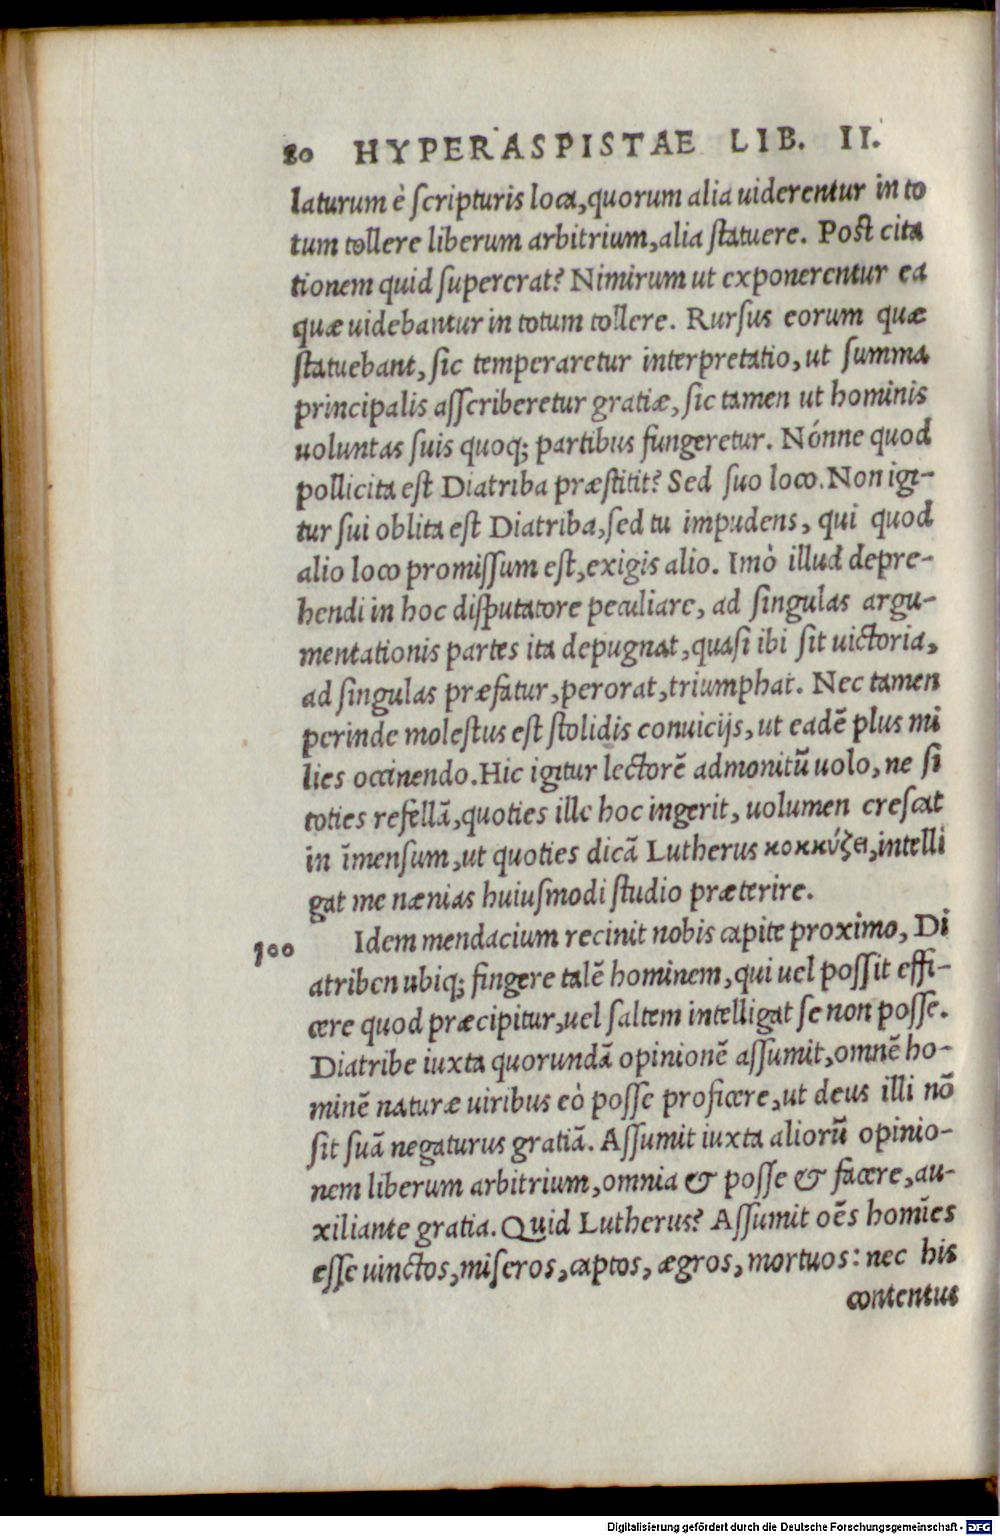 80 HYPERASPISTAE LIB. II.
laturum è scripturis loca, quorum alia uiderentur in to
tum tollere liberum arbitrium, alia statuere. Post cita
tionem quid supererat? Nimirum ut exponerentur ea
quæ uidebantur in totum tollere. Rursus eorum quæ
statuebant, sic temperaretur interpretatio, ut summa
principalis asscriberetur gratiæ, sic tamen ut hominis
uoluntas suis quoq; partibus fungeretur. Nónne quod
pollicita est Diatriba præstitit? Sed suo loco. Non igi-
tur sui oblita est Diatriba, sed tu impudens, qui quod
alio loco promissum est, exigis alio. Imò illud depre-
hendi in hoc disputatore peculiare, ad singulas argu-
mentationis partes ita depugnat, quasi ibi sit uictoria,
ad singulas præfatur, perorat, triumphat. Nec tamen
perinde molestus est stolidis conuicijs, ut eadē plus mi
lies occinendo. Hic igitur lectorē admonitū uolo, ne si
toties refellā, quoties ille hoc ingerit, uolumen crescat
in īmensum, ut quoties dicā Lutherus κοκκύζει, intelli
gat me nænias huiusmodi studio præterire.
300 Idem mendacium recinit nobis capite proximo, Di
atriben ubiq; fingere talē hominem, qui uel possit effi-
cere quod præcipitur, uel saltem intelligat se non posse.
Diatribe iuxta quorundā opinionē assumit, omnē ho-
minē naturæ uiribus eò posse proficere, ut deus illi nō
sit suā negaturus gratiā. Assumit iuxta aliorū opinio-
nem liberum arbitrium, omnia & posse & facere, au-
xiliante gratia. Quid Lutherus? Assumit oēs homīes
esse uinctos, miseros, captos, ægros, mortuos: nec his
contentus
Digitalisierung gefördert durch die Deutsche Forschungsgemeinschaft - DFG